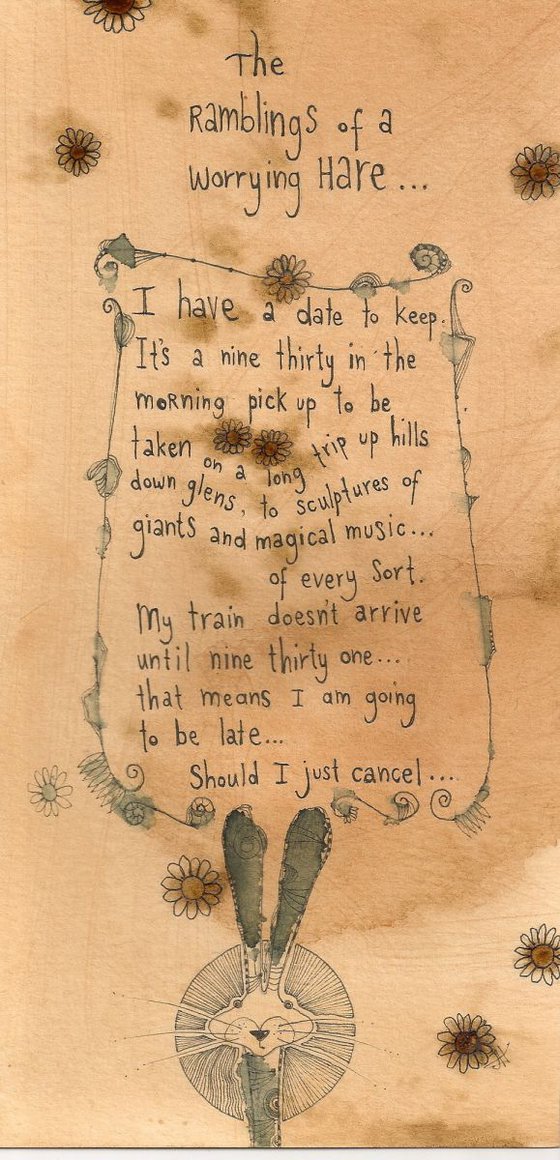 The
Ramblings of a
Worrying Hare...
I have a date to keep.
It's a nine thirty in the
morning pick up to be
taken on a long trip up hills
down glens, to sculptures of
giants and magical music...
of every sort.
My train doesn't arrive
until nine thirty one...
that means I am going
to be late...
Should I just cancel...